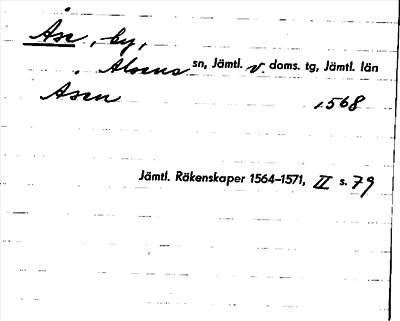 Åse, by,
Alsens sn, Jämtl. v. doms. tg, Jämtl. län
Åsen 1568
Jämtl. Räkenskaper 1564–1571, II s. 79